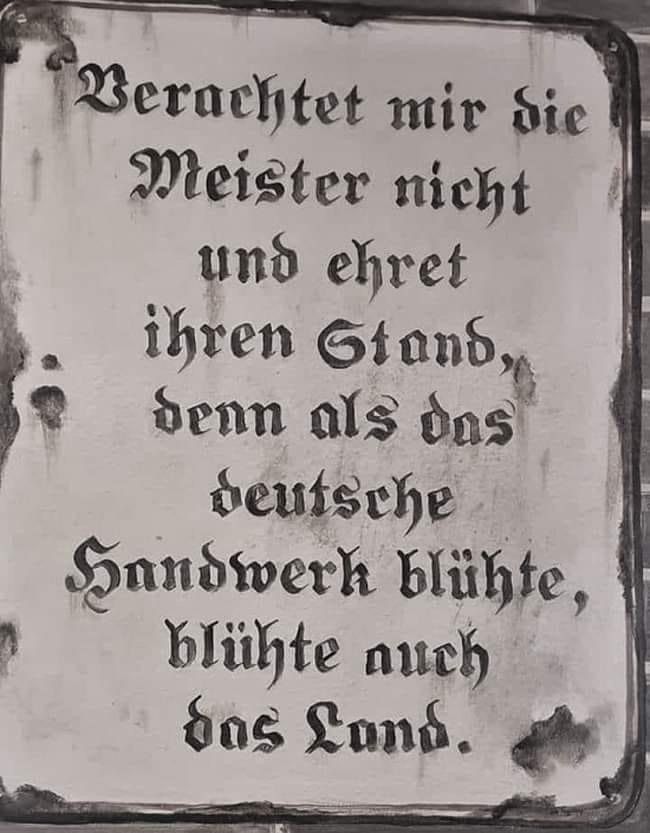 Verachtet mir die
Meister nicht
und ehret
ihren Stand,
denn als das
deutsche
Handwerk blühte,
blühte auch
das Land.